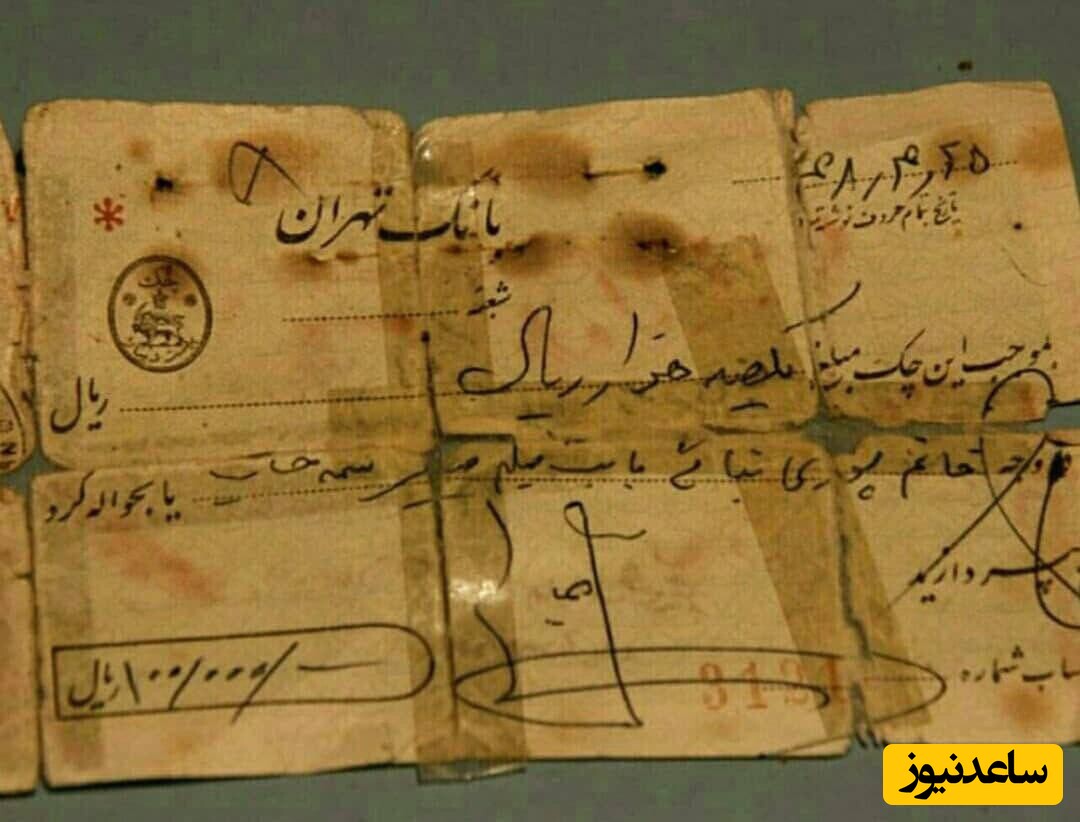 ۴۸٫۴٫۲۵
تاریخ بتمام حروف نوشته
بانک تهران
چک
شعبه
بموجب این چک مبلغ یکصد هزار ریال ریال
در وجه خانم پوری بنائی بابت فیلم یا بحواله کرد
بپردازید
۱۰۰/۰۰۰/ ریال
حساب شماره
3131
ساعدنیوز